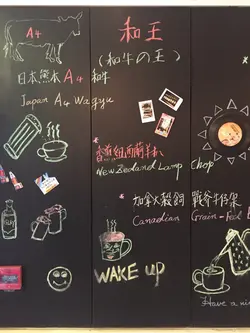 A4
和王
(和牛の王)
日本熊本A4和牛
Japan A4 Wagyu
New Zealand Lamp Chop
加拿大穀飼 戰斧牛仔架
Canadian Grain-Fed
WAKE UP
Have a ni